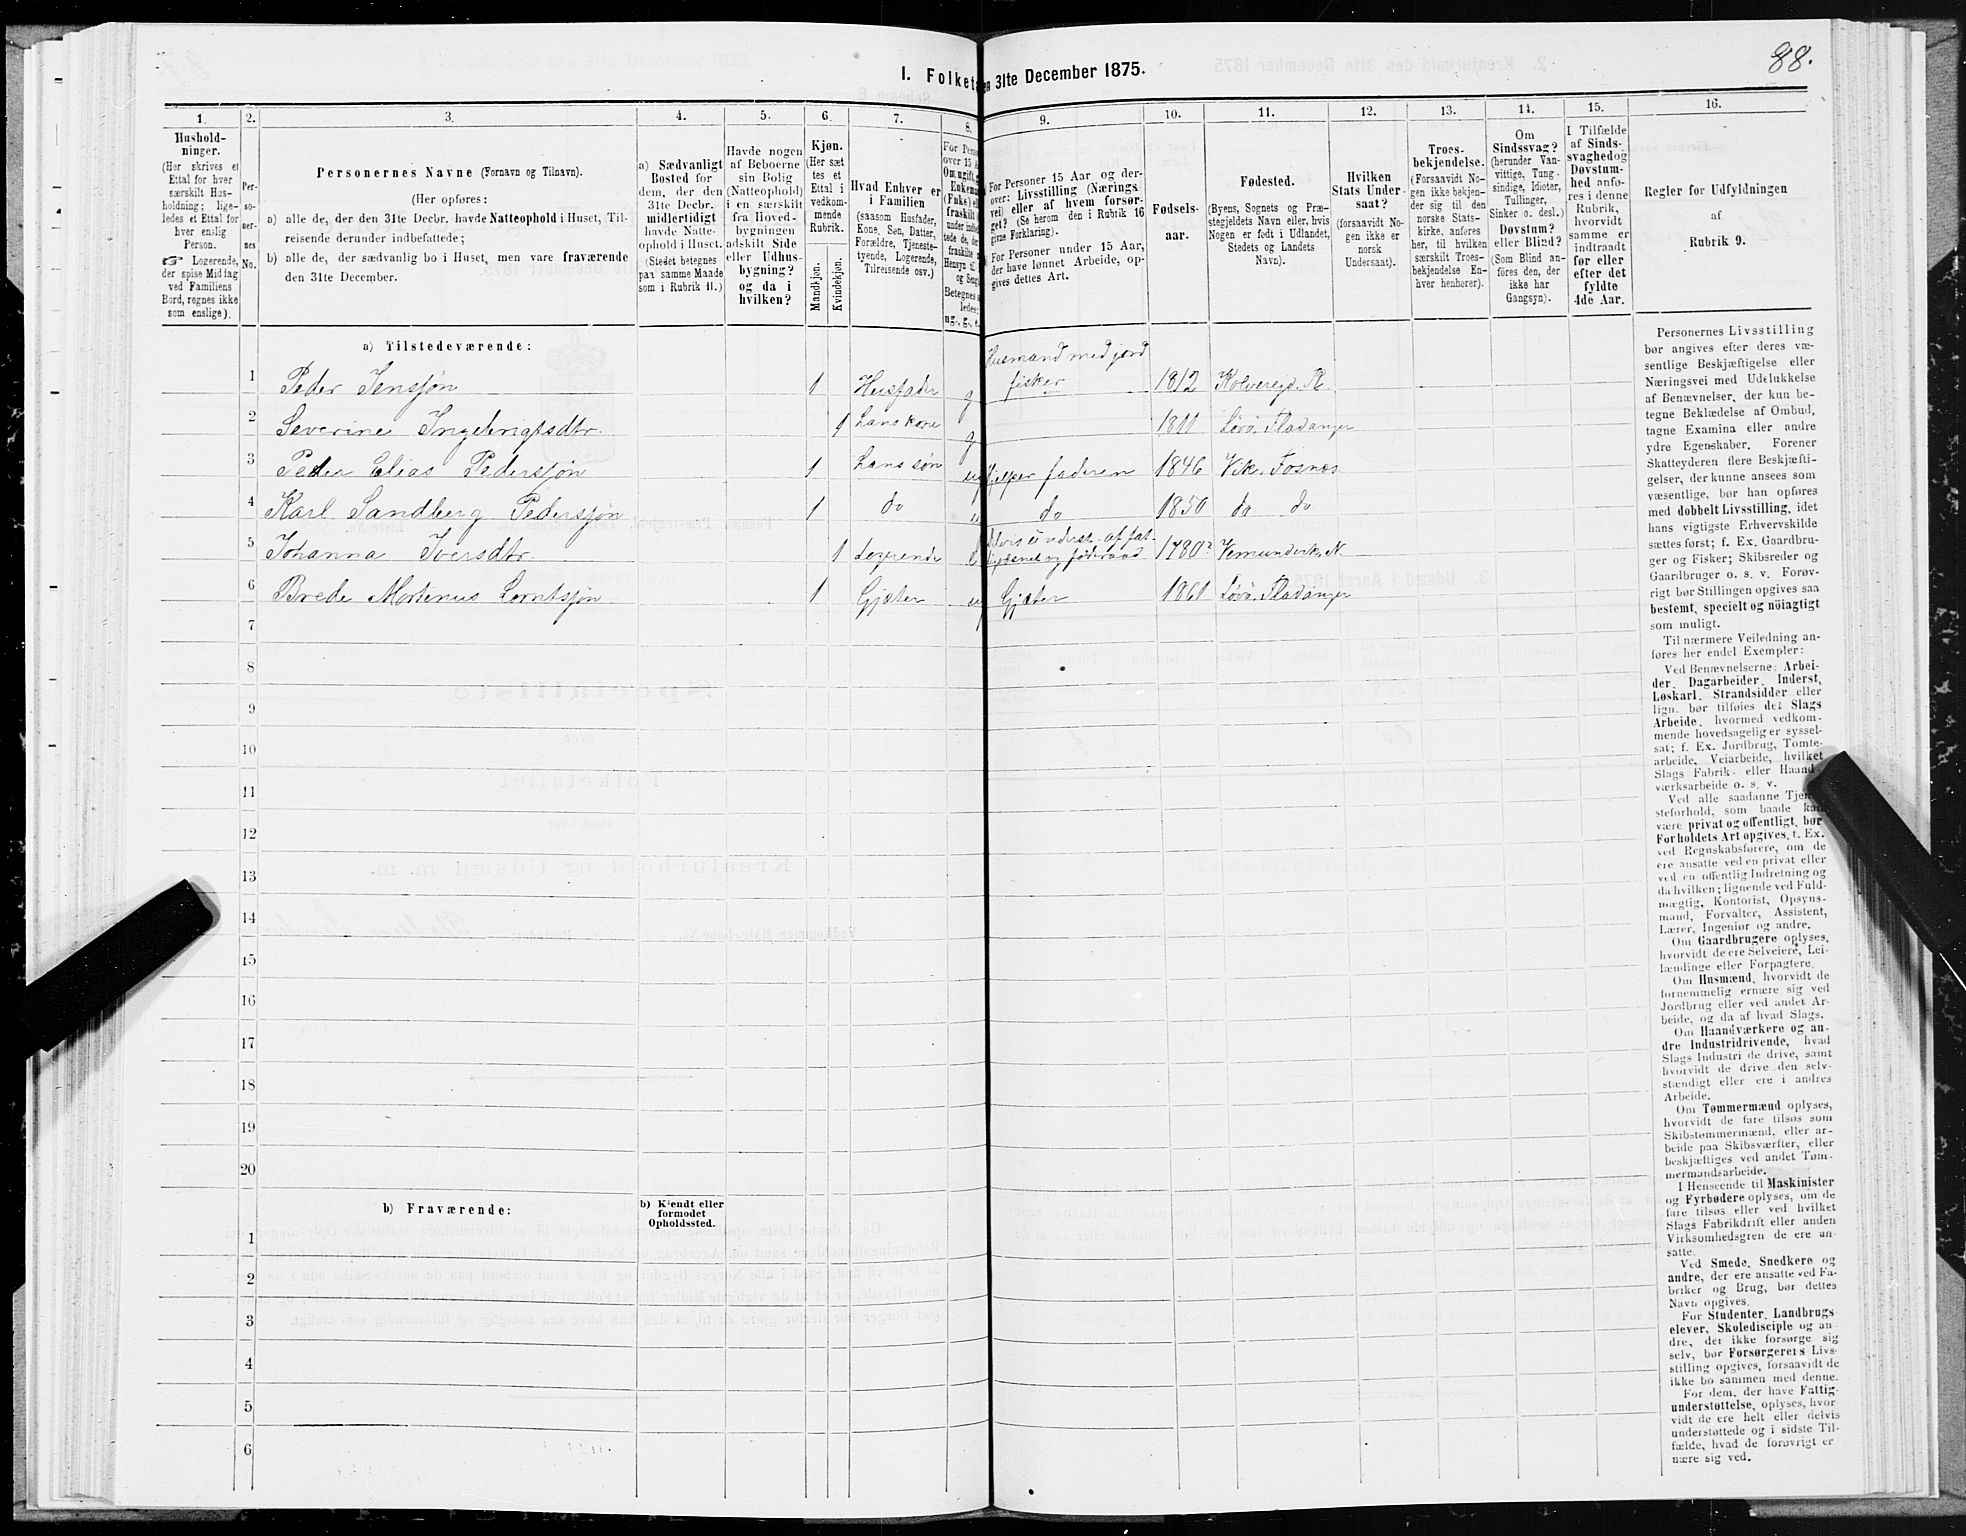 88.
I. Folket
en 31te December 1875.
1.
2.
3.
4.
5.
6.
7.
8.
9.
10.
11.
12.
13.
14.
15.
16.
Hushold-
ninger.
(Her skrives et
Ettal for hver
særskilt Hus-
holdning; lige-
ledes et Ettal for
hver enslig
Person.
☞ Logerende,
der spise Middag
ved Familiens
Bord, regnes ikke
som enslige).
Per-
so-
ner-
nes
No.
Personernes Navne (Fornavn og Tilnavn).
(Her opføres:
a) alle de, der den 31te Decbr. havde Natteophold i Huset, Til-
reisende derunder indbefattede;
b) alle de, der sædvanlig bo i Huset, men vare fraværende
den 31te December.
a) Sædvanligt
Bosted for
dem, der den
31te Decbr.
midlertidigt
havde Natte-
ophold i Huset.
(Stedet betegnes
paa samme Maade
som i Rubrik 11.)
Havde nogen
af Beboerne
sin Bolig
(Natteophold)
i en særskilt
fra Hoved-
bygningen
adskilt Side
eller Udhus-
bygning?
og da i
hvilken?
Kjøn.
(Her sæt
tes et
Ettal i
vedkom-
mende
Rubrik.
Mandkjøn.
Kvindekjøn.
Hvad Enhver er
i Familien
(saasom Husfader,
Kone, Søn, Datter,
Forældre, Tjeneste-
tyende, Logerende,
Tilreisende osv.)
For Perso
over 15 A
Om ugift, g
Enkema
(Enke) el
fraskilt
Betegnes
ledes:
ug., g., e.
For Personer 15 Aar og der-
over: Livsstilling (Nærings
vei) eller af hvem forsør-
get? (Se herom den i Rubrik 16
givne Forklaring).
For Personer under 15 Aar,
der have lønnet Arbeide, op-
gives dettes Art.
Fødsels-
aar.
Fødested.
(Byens, Sognets og Præ-
stegjeldets Navn eller, hvis
Nogen er født i Udlandet,
Stedets og Landets
Navn).
Hvilken
Stats Under-
saat?
(forsaavidt No-
gen ikke er
norsk
Undersaat).
Troes-
bekjendelse.
(Forsaavidt No-
gen ikke bekjen-
der sig til den
norske Stats-
kirke, anføres
her, til hvilken
særskilt Troes-
bekjendelse En-
hver henhører).
Om
Sindssvag?
(herunder Van-
vittige, Tung-
sindige, Idioter,
Tullinger,
Sinker o. desl.)
Døvstum?
eller Blind?
(Som Blind an-
føres den, der
ikke har
Gangsyn).
I Tilfælde
af Sinds-
svaghed og
Døvstum-
hed anfø-
res i denne
Rubrik,
hvorvidt
samme er
indtraadt
før eller
efter det
fyldte
4de Aar.
Regler for Udfyldningen
af
Rubrik 9.
a) Tilstedeværende:
Husmand med jord
1 Peder Jensøn 1 Husfader g fisker 1812 Kolvereid. N.
2 Severine Ingebrigtsdtr. 1 hans kone g 1811 Løvø. Fladanger
3 Peder Elias Pedersøn 1 hans søn ug hjelper faderen 1846 Vik. Fosnes
4 Karl Sandberg Pedersøn 1 do do 1850 do do
5 Johanna Iversdtr. 1 Logerende underst. af fat- 1780? Vemundvik. N.
og føderaad
6 Brede Mortinus Lorntsøn 1 Gjæter ug Gjæter 1861 Løvø. Fladanger
7
8
9
10
11
12
13
14
15
16
17
18
19
20
b) Fraværende:
b) Kjendt eller
formodet
Opholdssted.
1
2
3
4
5
6
Personernes Livsstilling
bør angives efter deres væ-
sentlige Beskjæftigelse eller
Næringsvei med Udelukkelse
af Benævnelser, der kun be-
tegne Beklædelse af Ombud,
tagne Examina eller andre
ydre Egenskaber. Forener
Skatteyderen flere Beskjæfti-
gelser, der kunne ansees som
væsentlige, bør han opføres
med dobbelt Livsstilling, idet
hans vigtigste Erhvervskilde
sættes først; f. Ex. Gaardbru-
ger og Fisker; Skibsreder og
Gaardbruger o. s. v. Forøv-
rigt bør Stillingen opgives saa
bestemt, specielt og nöiagtigt
som muligt.
Til nærmere Veiledning an-
føres her endel Exempler:
Ved Benævnelserne: Arbei-
der, Dagarbeider, Inderst,
Løskarl, Strandsidder eller
lign. bør tilføies det Slags
Arbeide, hvormed vedkom-
mende hovedsagelig er syssel-
sat; f. Ex. Jordbrug, Tomte-
arbeide, Veiarbeide, hvilket
Slags Fabrik- eller Haand-
værksarbeide o. s. v.
Ved alle saadanne Tjene-
steforhold, som baade kan
være privat og offentligt, bør
Forholdets Art opgives, t. Ex.
ved Regnskabsførere, om de
ere ansatte ved en privat eller
ved en offentlig Indretning og
da hvilken; lignende ved Fuld-
mægtig, Kontorist, Opsyns-
mand, Forvalter, Assistent,
Lærer, Ingeniør og andre.
Om Gaardbrugere oplyses,
hvorvidt de ere Selveiere, Lei-
lændinge eller Forpagtere.
Om Husmænd, hvorvidt de
fornemmelig ernære sig ved
Jordbrug eller ved andet Ar-
beide, og da af hvad Slags.
Om Haandværkere og an-
dre Industridrivende, hvad
Slags Industri de drive, samt
hvorvidt de drive den selv-
stændigt eller ere i andres
Arbeide.
Om Tømmermænd oplyses,
hvorvidt de fare tilsøs som
Skibstømmermænd, eller ar-
beide paa Skibsværfter, eller
beskjæftiges ved andet Tøm-
mermandsarbeide.
I Henseende til Maskinister
og Fyrbødere oplyses, om de
fare tilsøs eller ved hvilket
Slags Fabrikdrift eller anden
Virksomhedsgren de ere an-
satte.
Ved Smede, Snedkere og
andre, der ere ansatte ved Fa-
briker og Brug, bør dettes
Navn opgives.
For Studenter, Landbrugs
elever, Skoledisciple og an-
dre, der ikke forsørge sig
selv, bør Forsørgerens Livs-
stilling opgives, forsaavidt de
ikke bo sammen med denne.
For dem, der have Fattig-
understøttelse, oplyses, hvor
vidt de ere helt eller delvis
understøttede og i sidste Til-
fælde, hvad de forøvrigt er
nære sig ved.